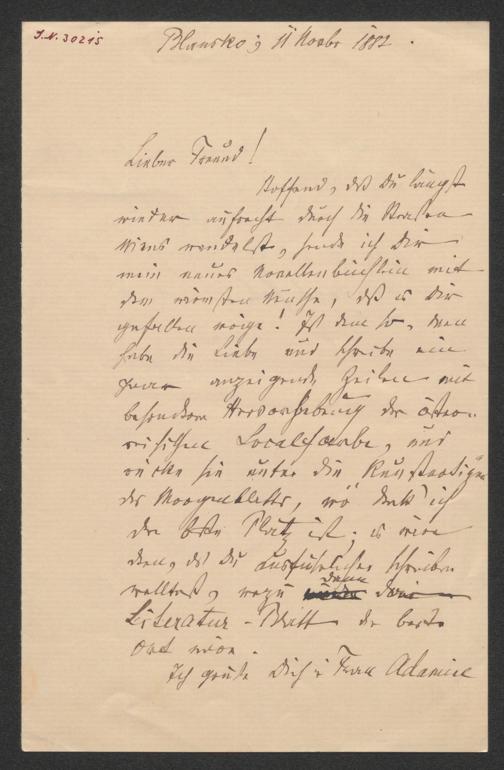 J.N. 30215
Blansko, 11 Novbr 1882.
Lieber Freund!
Hoffend, daß Du längst
wieder aufrecht durch die Straßen
Wiens wandelst, sende ich Dir
mein neues Novellenbüchlein mit
dem wärmsten Wunsche, daß es Dir
gefallen möge! Ist dem so, dann
habe die Liebe und schreibe ein
paar anzeigende Zeilen mit
besonderer Hervorhebung der öster-
reichischen Localfarbe, und
rücke sie unter die
des Morgenblatts, wo ich
der beste Platz ist; es wäre
denn, daß Du ausführlicher schreiben
wolltest, wozu dann das
Literatur-Blatt der beste
Ort wäre.
Ich grüße Dich u Frau